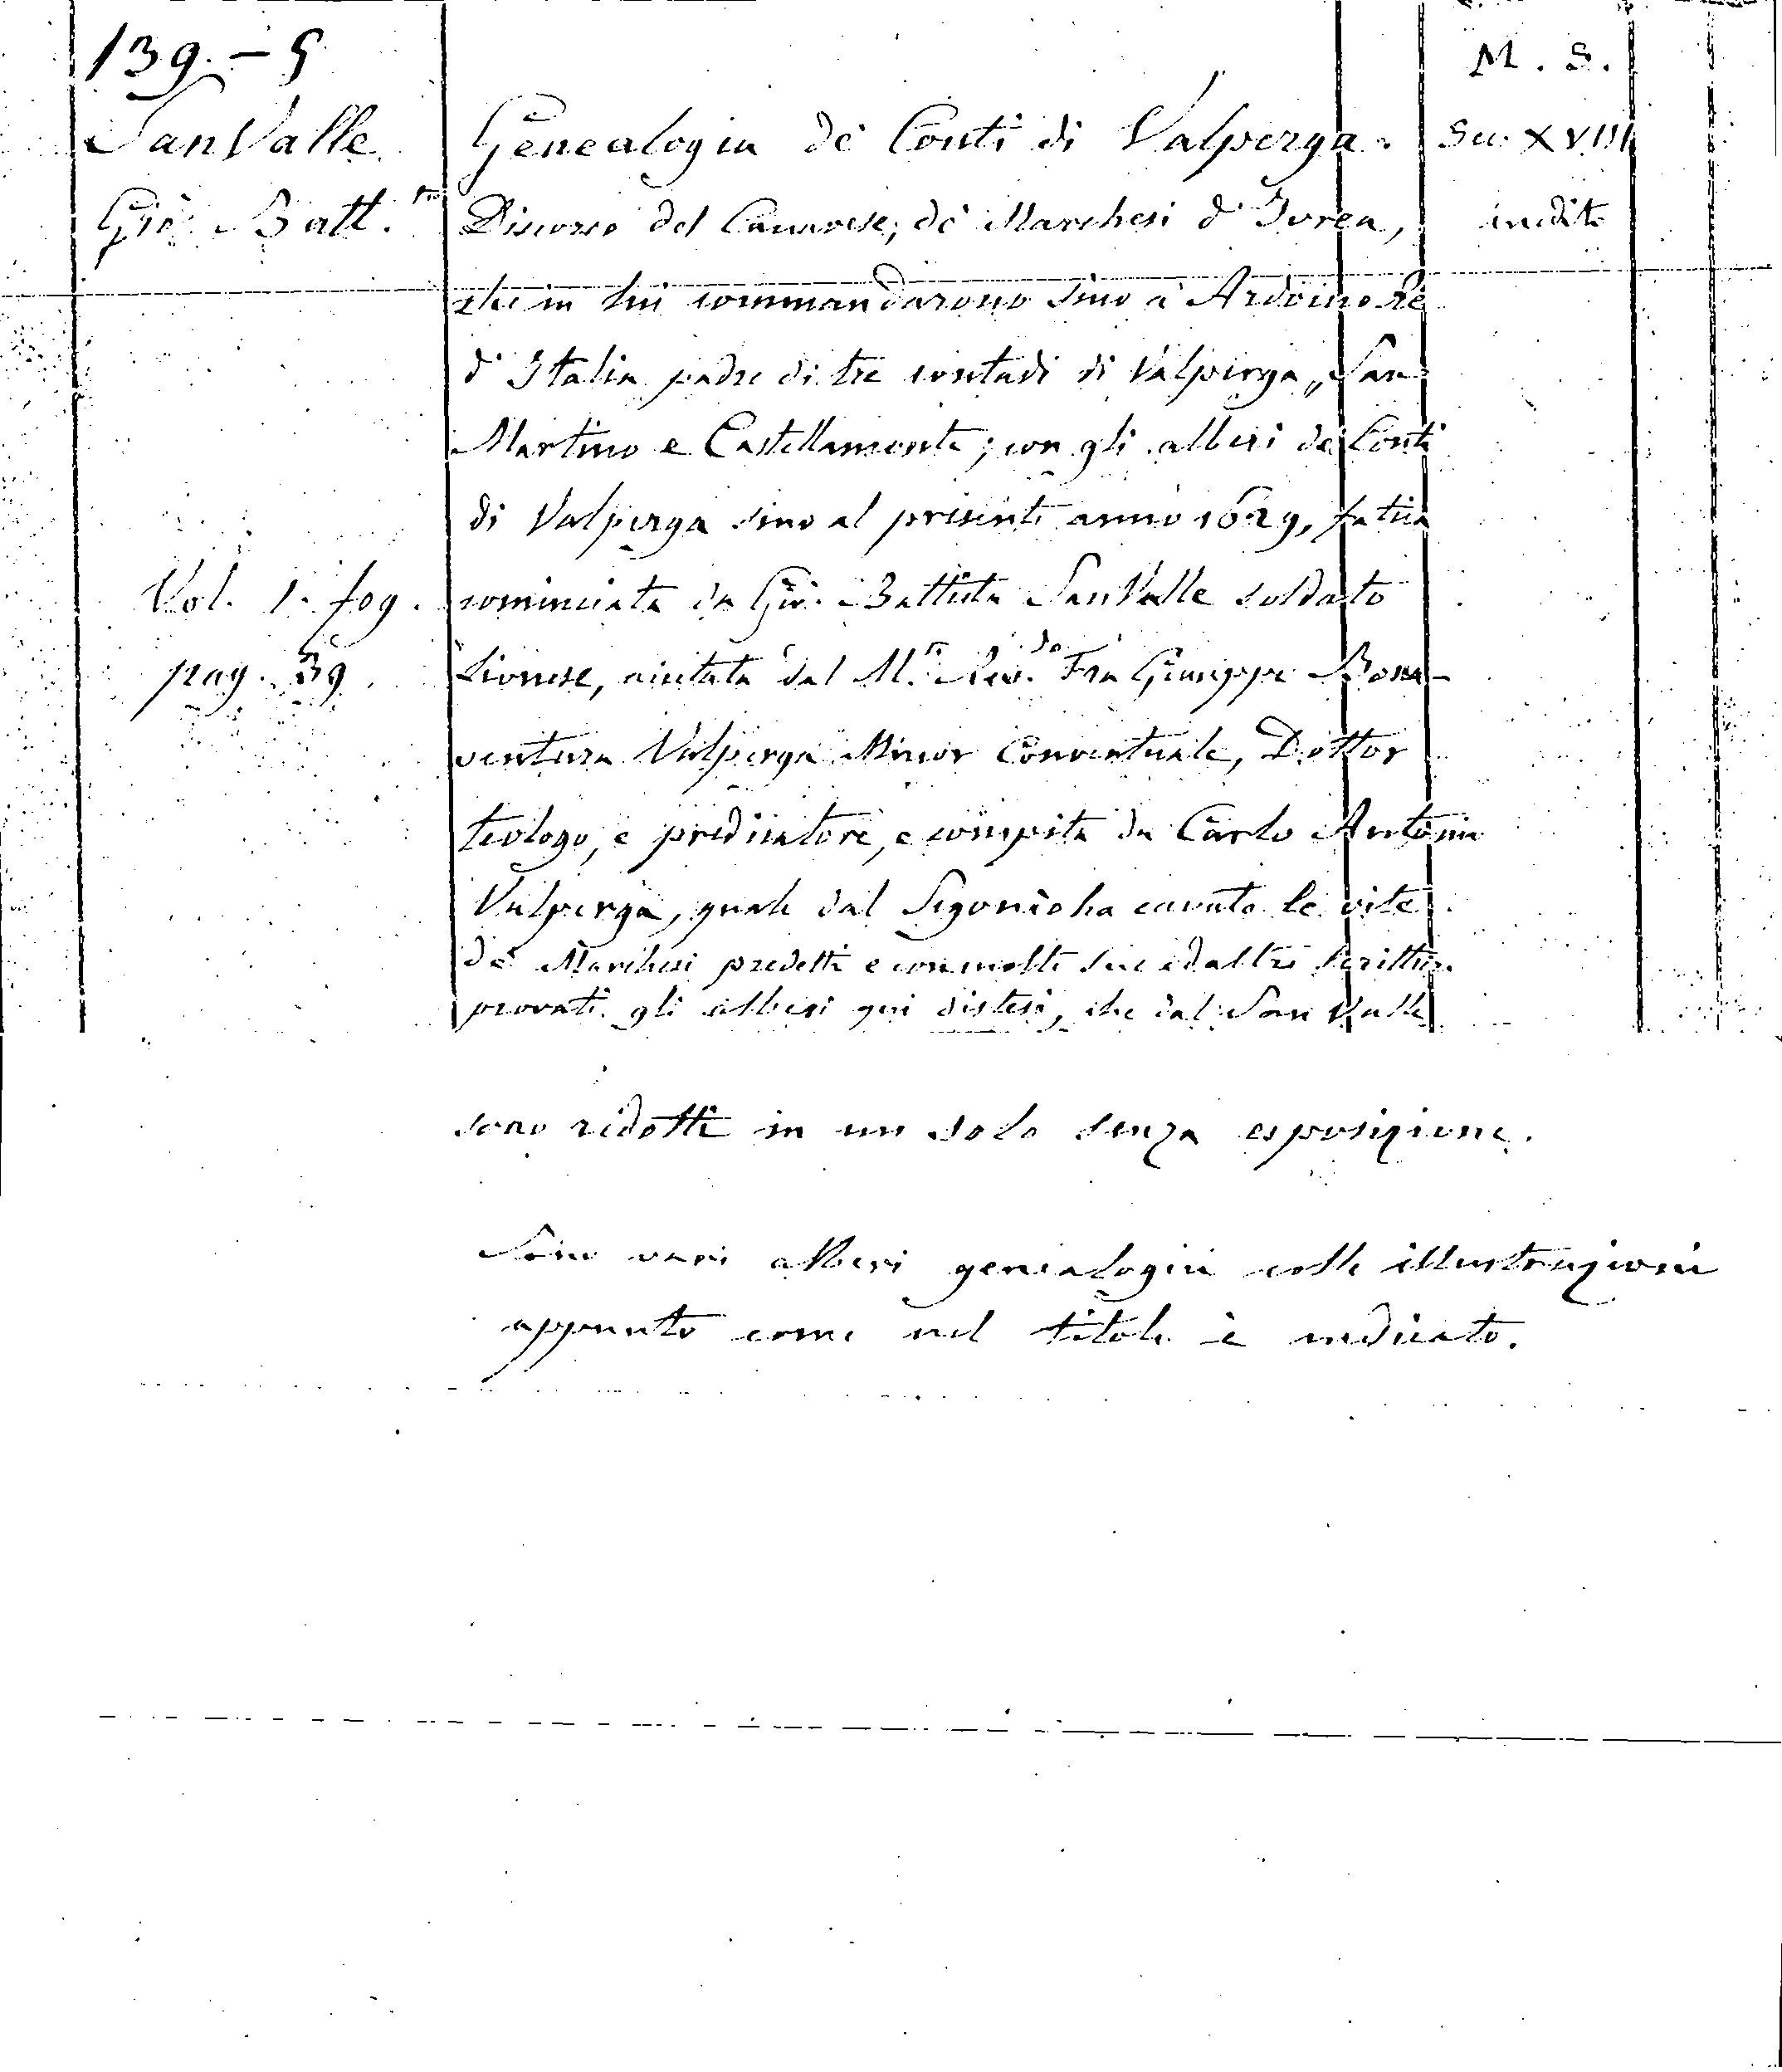 139. - 5
M. S.
SanValle
Genealogia de' Conti di Valperga.
Sec. XVIII
Gio. Batt.ta
Discorso del Canavese, de' Marchesi d'Ivrea,
inedito
che in lui commandarono sino a Ardoino Re
d'Italia padre di tre contadi di Valperga, San
Martino e Castellamonte; con gli alberi de' Conti
di Valperga sino al presente anno 1629, fatica
Vol. 1. fog.
cominciata da Gio. Battista SanValle soldato
pag. 39.
Lionese, aiutata dal M.r Rev.do Fra Giuseppe Bona-
ventura Valperga Minor Conventuale, Dottor
teologo, e predicatore, e compita da Carlo Antonio
Valperga, quale dal Sigonio ha cavato le vite
de' Marchesi predetti e con molte sue ed altre scritture
provati gli alberi qui distesi, che dal San Valle
sono ridotti in un solo senza esposizione.
Sono varii alberi genealogici colle illustrazioni
appunto come nel titolo è indicato.